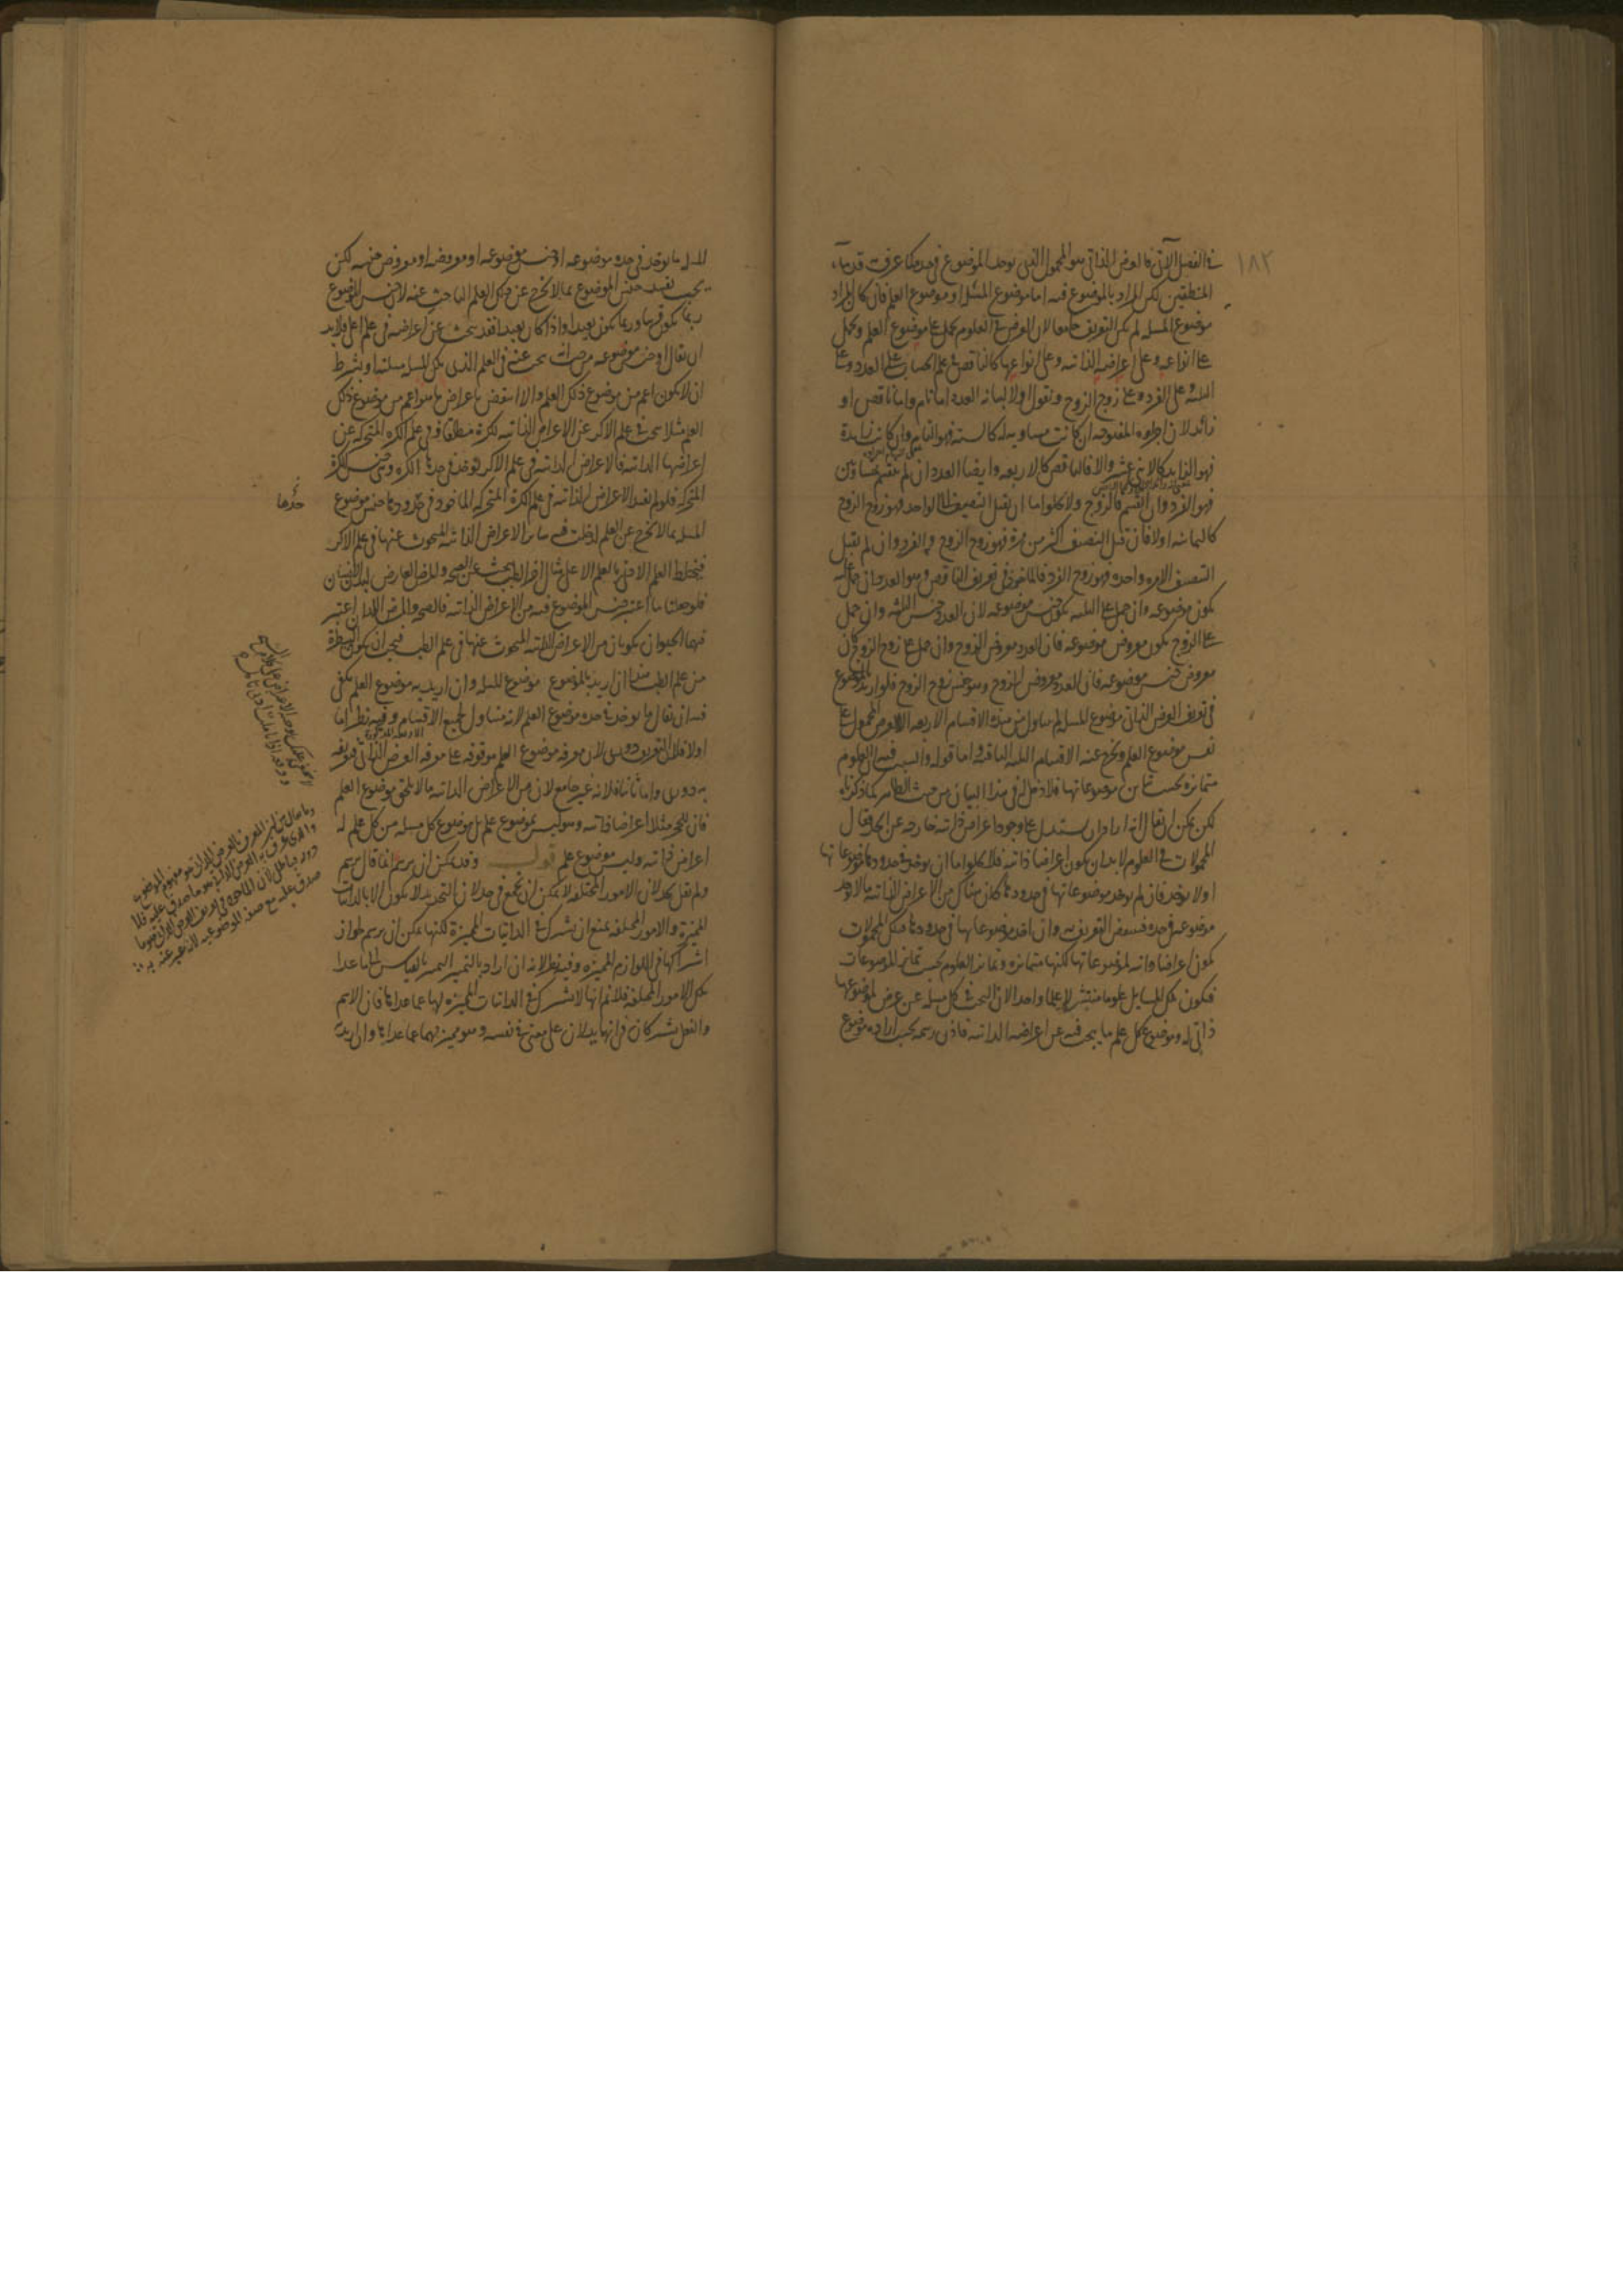 ١٨٢
في الفصل الآتي فالعرض الذاتي هو المحمول الذي يوخذ الموضوع في حده هكذا عرفت قدماء
المنطقيين لكن المراد بالموضوع فيه اما موضوع المسئلة او موضوع العلم فان كان المراد
موضوع المسله لم يكن التعريف جامعا لان العرض في العلوم يحمل على موضوع العلم ويحمل
على انواعه وعلى اعراضه الذاتيه وعلى انواعها كالناقص في علم الحساب على العدد وعلى
الثلثة وعلى الفرد وعلى زوج الزوج ونقول اولا لبيانه العدد اما تام واما ناقص او
زائد لان اجزاءه المفروضه ان كانت مساويه له كالسته فهو التام وان كانت زايدة
فهو الزايد كالاثني عشر والا فالناقص كالاربعه وايضا العدد ان لم ينقسم بمتساويين
فهو الفرد وان انقسم فالزوج ولا يخلو اما ان يقبل التنصيف الى الواحد فهو زوج الزوج
كالثمانيه اولا فان قبل التنصف اكثر من مرة فهو زوج الزوج والفرد وان لم يقبل
التنصف الا مره واحده فهو زوج الفرد فالماخوذ في تعريف الناقص وهو العدد ان حمل عليه
يكون موضوعه وان حمل على الثلثه يكون جنس موضوعه لان العدد جنس الثلثه وان حمل
على الزوج يكون معروض موضوعه فان العدد معروض الزوج وان حمل على زوج الزوج كان
معروض جنس موضوعه فان العدد معروض الزوج وهو جنس زوج الزوج فلو اريد بالموضوع
في تعريف العرض الذاتي موضوع المسله لم يتناول من هذه الاقسام الاربعه الا العرض المحمول على
نفس موضوع العلم ويخرج عنه الاقسام الثلثه الباقيه واما قوله والسبب فيه ان العلوم
متمايزه بحسب تمايز موضوعاتها فلا دخل له في هذا البيان من حيث الظاهر كما ذكرناه
لكن يمكن ان يقال انه اراد ان يستدل على وجود اعراض ذاتيه خارجه عن الحد فقال
المحمولات في العلوم لا بد ان يكون اعراضا ذاتيه فلا يخلو اما ان يوخذ في حدودها موضوعاتها
اولا يوخذ فان لم يوخذ موضوعاتها في حدودها كان هناك من الاعراض الذاتيه ما لا يوخذ
موضوعه في حده فينتقض التعريف به وان اخذ موضوعاتها في حدودها فتلك المحمولات
يكون اعراضا ذاتيه لموضوعاتها لكنها متمايزه وتمايز العلوم بحسب تمايز الموضوعات
فيكون تلك المسايل علوما منتشرة لا علما واحدا لان البحث في كل مسله عن عرض لموضوعها
ذاتي له وموضوع كل علم ما يبحث فيه عن اعراضه الذاتيه فاذن رسمه بحسب اراده موضوع
المسله ما يوخذ في حده موضوعه او جنس موضوعه او معروضه او معروض جنسه لكن
يجب تقييد جنس الموضوع بما لا يخرج عن ذلك العلم الباحث عنه لان جنس الموضوع
ربما يكون قريبا وربما يكون بعيدا واذا كان بعيدا فقد يبحث عن اعراضه في علم اعلى فلا بد
ان يقال او جنس موضوعه من حيث انه يبحث عنه في العلم الذي تلك المسله مسلته او يشترط
ان لا يكون اعم من موضوع ذلك العلم والا انتقض باعراض ما هو اعم من موضوع ذلك
العلم مثلا يبحث في علم الاكر عن الاعراض الذاتيه للكرة مطلقا وفي علم الكره المتحركه عن
اعراضها الذاتيه فالاعراض الذاتيه في علم الاكر يوخذ في حدها الكره وهي جنس الكرة
المتحركه فلو لم يقيد الاعراض الذاتيه في علم الكره المتحركه الماخوذ في حدودها جنس موضوع
المسله بما لا يخرج عن العلم لدخلت فيه سائر الاعراض الذاتيه المبحوث عنها في علم الاكر
فيختلط العلم الادنى بالعلم الاعلى مثال اخر الطب يبحث عن الصحه والمرض العارض لبدن الانسان
فلو جعلنا ما اعتبر جنس الموضوع فيه من الاعراض الذاتيه فالصحه والمرض اللذان اعتبر
فيهما الحيوان يكونان من الاعراض الذاتيه المبحوث عنها في علم الطب فيجب ان يكون البيطرة
من علم الطب هذا ان اريد بالموضوع موضوع المسله وان اريد به موضوع العلم يكفي
فيه ان يقال ما يوخذ في حده موضوع العلم لانه متناول لجميع الاقسام وفيه نظر اما
الاربعة المذكورة
اولا فلان التعريف دوري لان معرفه موضوع العلم موقوفه على معرفه العرض الذاتي فتعريفه
به دوري واما ثانيا فلانه غير جامع لان من الاعراض الذاتيه ما لا يلحق موضوع العلم
فان للحجر مثلا اعراضا ذاتيه وهو ليس بموضوع علم بل موضوع كل مسله من كل علم له
اعراض ذاتيه وليس موضوع علم قولـــه وقد يمكن ان يرسم انما قال يرسم
ولم يقل يحد لان الامور المختلفه لا يمكن ان تجمع في حد لان التحديد لا يكون الا بالذاتيات
المميزة والامور المختلفه يمتنع ان تشترك في الذاتيات المميزة لكنها يمكن ان يرسم لجواز
اشتراكها في اللوازم المميزه وفيه نظر لانه ان اراد بالتميز التميز بالقياس الى ما عدا
تلك الامور المختلفه فلا نم انها لا تشترك في الذاتيات المميزه لها عما عداها فان الاسم
والفعل يشتركان في انهما يدلان على معنى في نفسه وهو مميز لهما عما عداها وان اريد
حدها